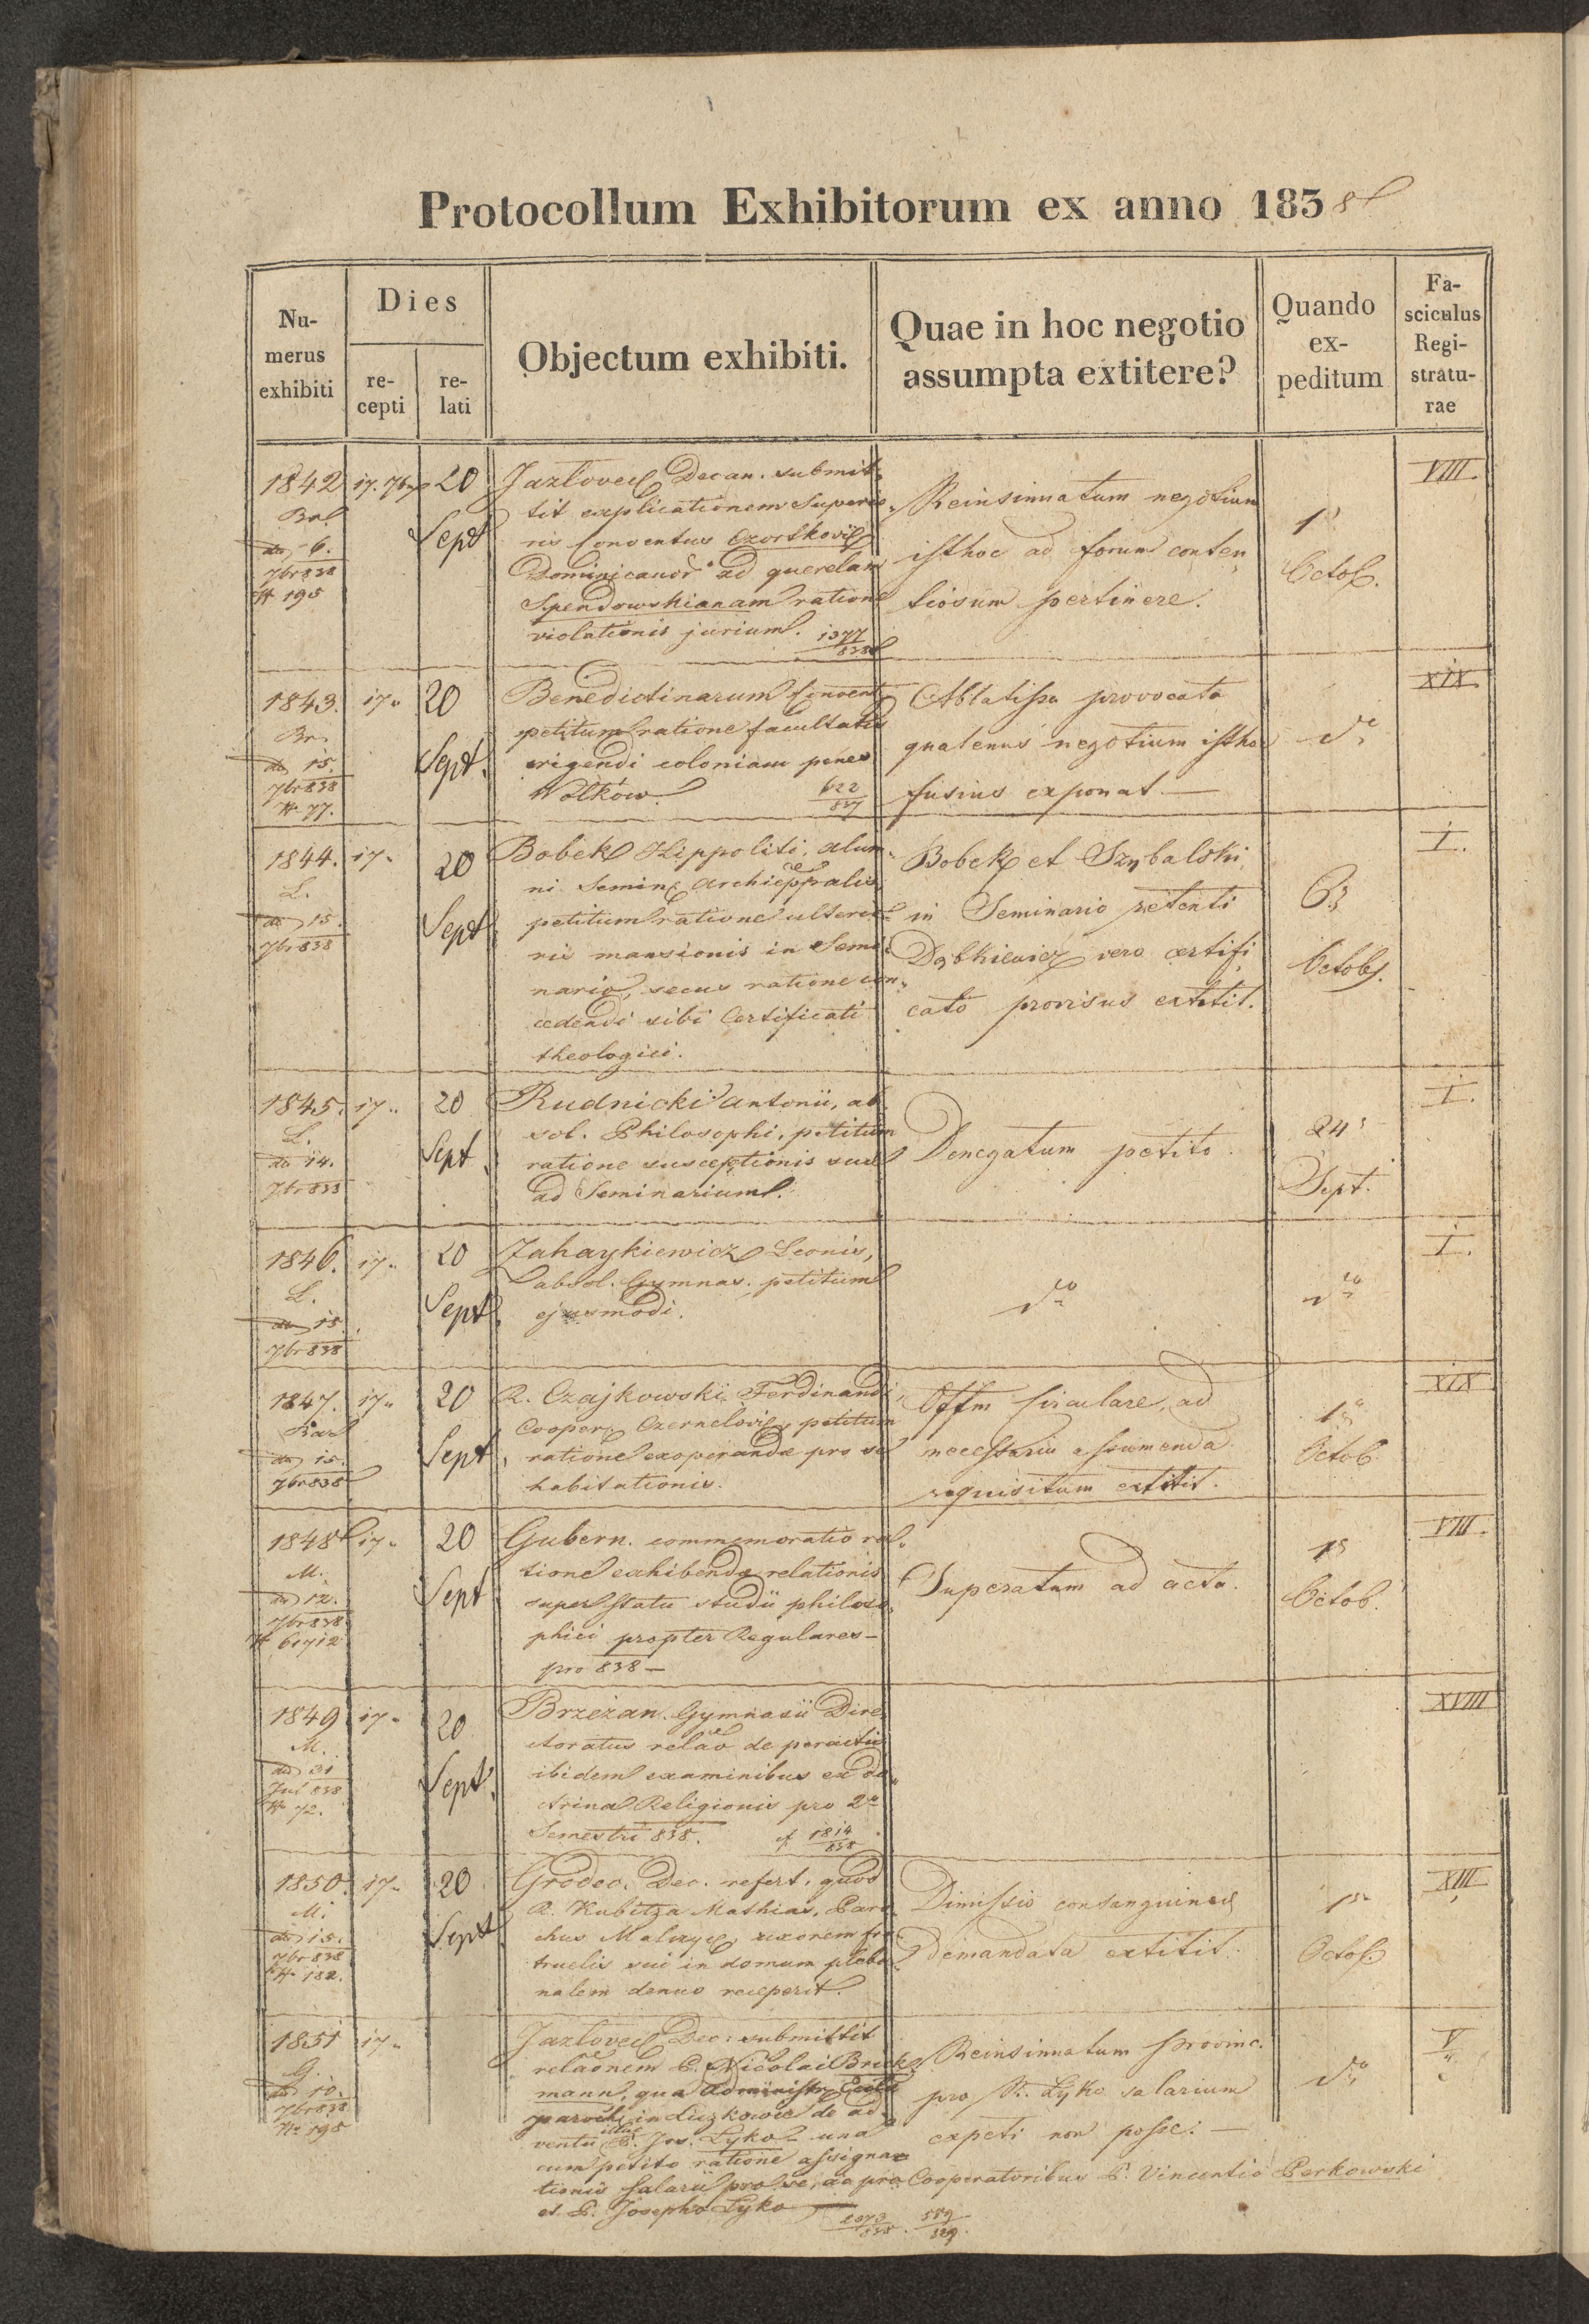 Protocollum Exhibitorum ex anno 1838
Nu-
merus
exhibiti
Dies
re-
cepti
re-
lati
Objectum exhibiti.
Quae in hoc negotio
assumpta extitere?
Quando
ex-
peditum
Fa-
sciculus
Regi-
stratu-
rae
1842
dto 6.
7br 838
N 195
17. 7br
20
Sept
Jazlovec. Decan. submit
tit explicationem Superio
ris Conventus Czortkovic
Dominicanor. ad querelam
Spendowskianam ratione
violationis jurium. 1377
838
Reinsinuatum negotium
isthoc ad forum conten
tiosum pertinere.
1
Octob.
VIII.
1843.
Br.
dto 15.
7br 838
N 77.
17.
20
Sept.
Benedictinarum Convent
petitum ratione facultatis
erigendi coloniam penes
Wolków. 622
837
Abbatissa provocata
quatenus negotium isthoc
fusius exponat. —
dto
XIX.
1844.
L.
dto 15.
7br 838
17.
20
Sept
Bobek Hippoliti, alum
ni Semin. archieppalis
petitum ratione ulterio
ris mansionis in Semi
nario, secus ratione con
cedendi sibi Certificati
theologici.
Bobek et Szybalski
in Seminario retenti
vero certifi
cato provisus extitit.
6
Octob.
I.
1845.
L.
do 14.
7br 838
17.
20
Sept.
Rudnicki Antonii, ab
sol. Philosophi, petitum
ratione susceptionis sui
ad Seminarium.
Denegatum petito.
24
Sept.
I.
1846.
L.
dto 15
7br 838
17.
20
Sept
Zahaykiewicz Leonis,
absol. Gymnas. petitum
ejusmodi.
dto
dto
I.
1847.
dto 15.
7br 838
17.
20
Sept.
R. Czajkowski Ferdinandi,
Cooper. Czernelovic, petitum
ratione exoperandæ pro se
habitationis.
Offm Circulare, ad
necessaria assumenda
requisitum extitit.
1
Octob
XIX
1848
M.
dto 12.
7br 838
N 61712
17.
20
Sept
Gubern. commemoratio ra
tione exhibendæ relationis
super statu studii philoso
phici propter Regulares —
pro 838 —
Superatum ad acta.
1
Octob.
VIII.
1849
M.
dto 31
Jul 838
N 72.
17.
20
Sept.
Brzeżan. Gymnasii Dire
ctoratus relao de peractis
ibidem examinibus ex do
ctrina Religionis pro 2o
Semestri 838. cf 1814
838
XVIII
1850.
M.
dto 15.
7br 838
N. 182.
17.
20
Sept
Grodec. Dec. refert, quod
R. Kubitza Mathias, Paro
chus Malczyc, uxorem fra
truelis sui in domum pleba
nalem denuo receperit.
Dimissio consanguineæ
demandata extitit.
1
Octob.
XIII
1851
G.
dto 10.
7br 838
N. 195
17.
Jazlovec. Dec. submittit
relaonem P. Nicolai Brick
mann, qua Administr. Eccla
paroch. in Liczkowce de ad
ventu illuc P. Jos. Lyko una
cum petito ratione assigna
tionis salarii pro se, ac pro Cooperatoribus P. Vincentio Perkowski
et P. Josepho Lyko
838. 559
829.
Reinsinuatum Provinc.
pro R. Lyko salarium
expeti non posse. —
dto
V